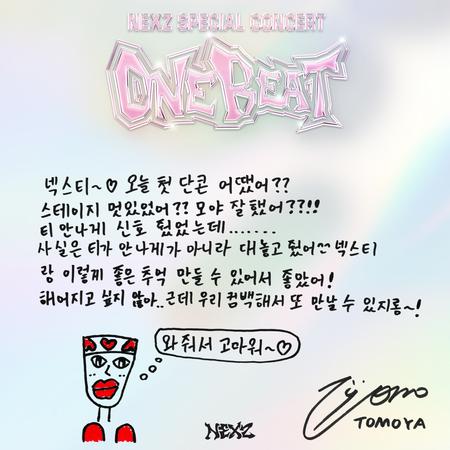 NEXZ SPECIAL CONCERT
ONE BEAT
넥스티~♡ 오늘 첫 단콘 어땠어??
스테이지 멋있었어?? 모야 잘 했어??!!
티 안나게 신호 줬었는데.......
사실은 티가 안나게가 아니라 대놓고 줬어~ 넥스티
랑 이렇게 좋은 추억 만들 수 있어서 좋았어!
헤어지고 싶지 않아.. 근데 우리 컴백해서 또 만날 수 있지롱~!
와 줘서 고마워~♡
TOMOYA
NEXZ